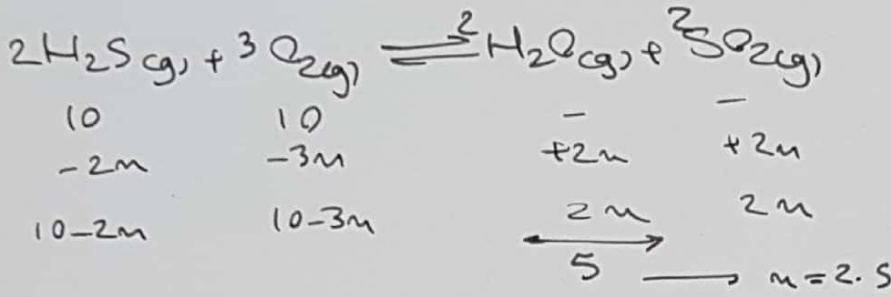 2H₂S(g) + 3O₂(g) ⇌ 2H₂O(g) + 2SO₂(g)
10 10 - -
-2n -3n +2n +2n
10-2n 10-3n 2n 2n
5 → n=2.5